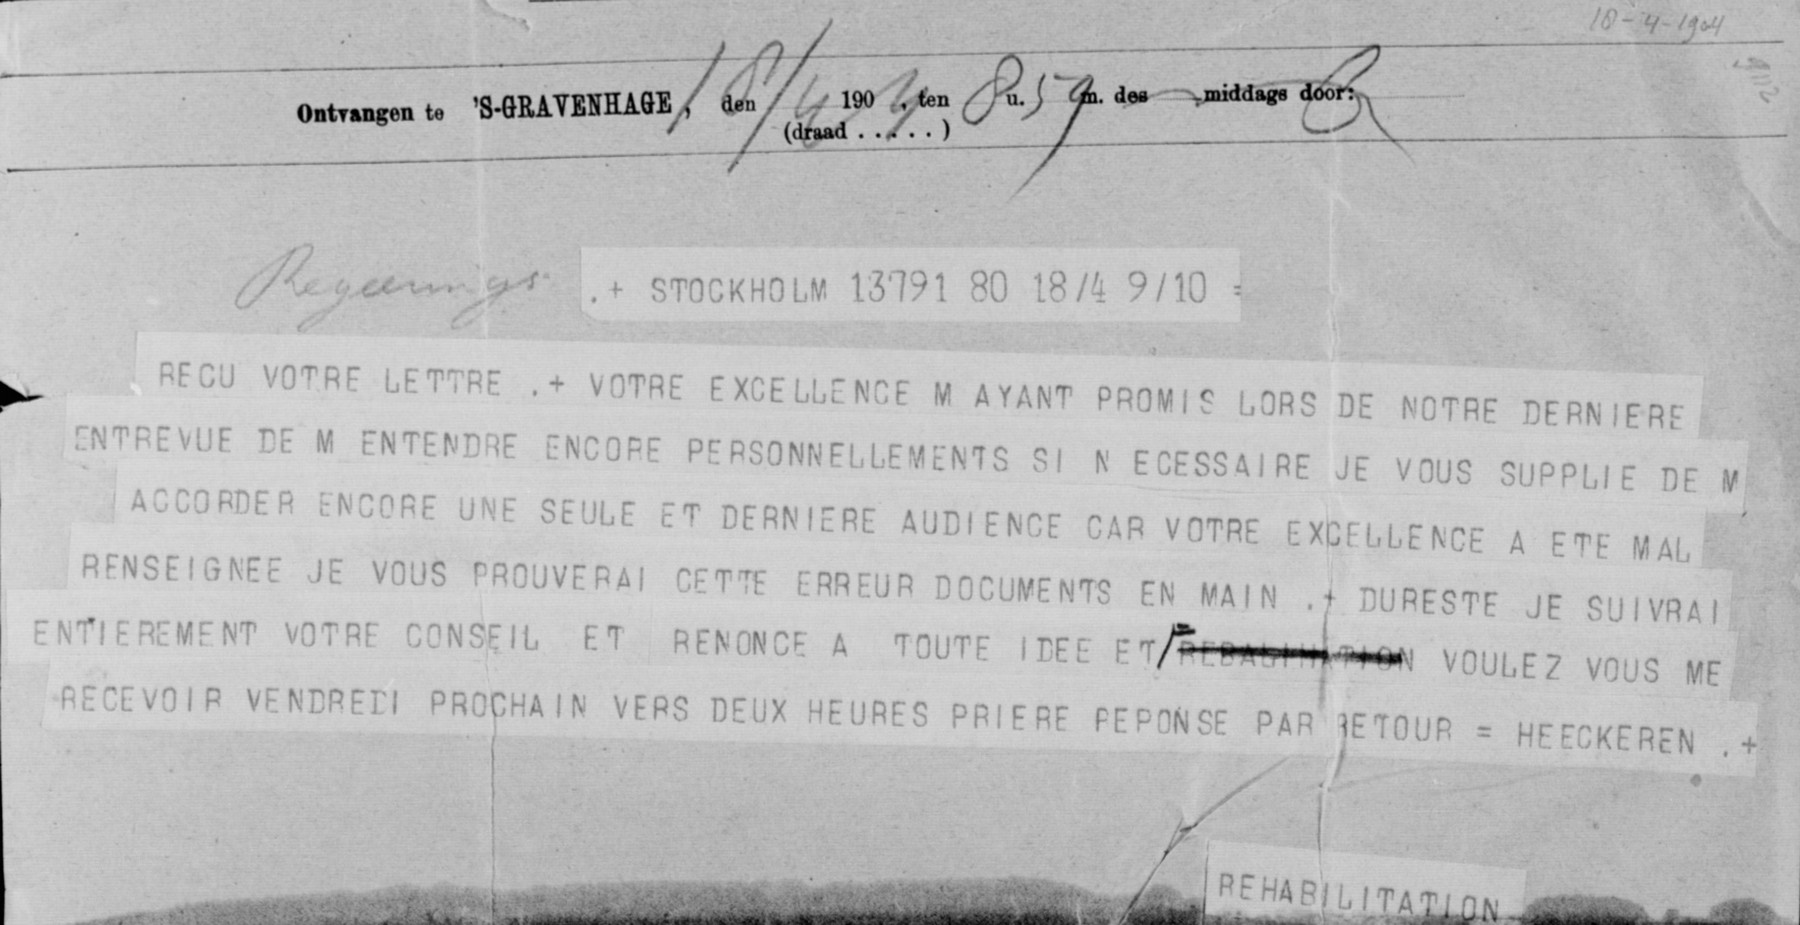 18-4-1904
Ontvangen te 'S-GRAVENHAGE, den 18/4 1904, ten 8 u. 59 m. des middags door:
(draad . . . . . )
Regeerings
.+ STOCKHOLM 13791 80 18/4 9/10 =
RECU VOTRE LETTRE .+ VOTRE EXCELLENCE M AYANT PROMIS LORS DE NOTRE DERNIERE
ENTREVUE DE M ENTENDRE ENCORE PERSONNELLEMENTS SI N ECESSAIRE JE VOUS SUPPLIE DE M
ACCORDER ENCORE UNE SEULE ET DERNIERE AUDIENCE CAR VOTRE EXCELLENCE A ETE MAL
RENSEIGNEE JE VOUS PROUVERAI CETTE ERREUR DOCUMENTS EN MAIN .+ DURESTE JE SUIVRAI
ENTIEREMENT VOTRE CONSEIL ET RENONCE A TOUTE IDEE ET VOULEZ VOUS ME
RECEVOIR VENDREDI PROCHAIN VERS DEUX HEURES PRIERE REPONSE PAR RETOUR = HEECKEREN .+
REHABILITATION